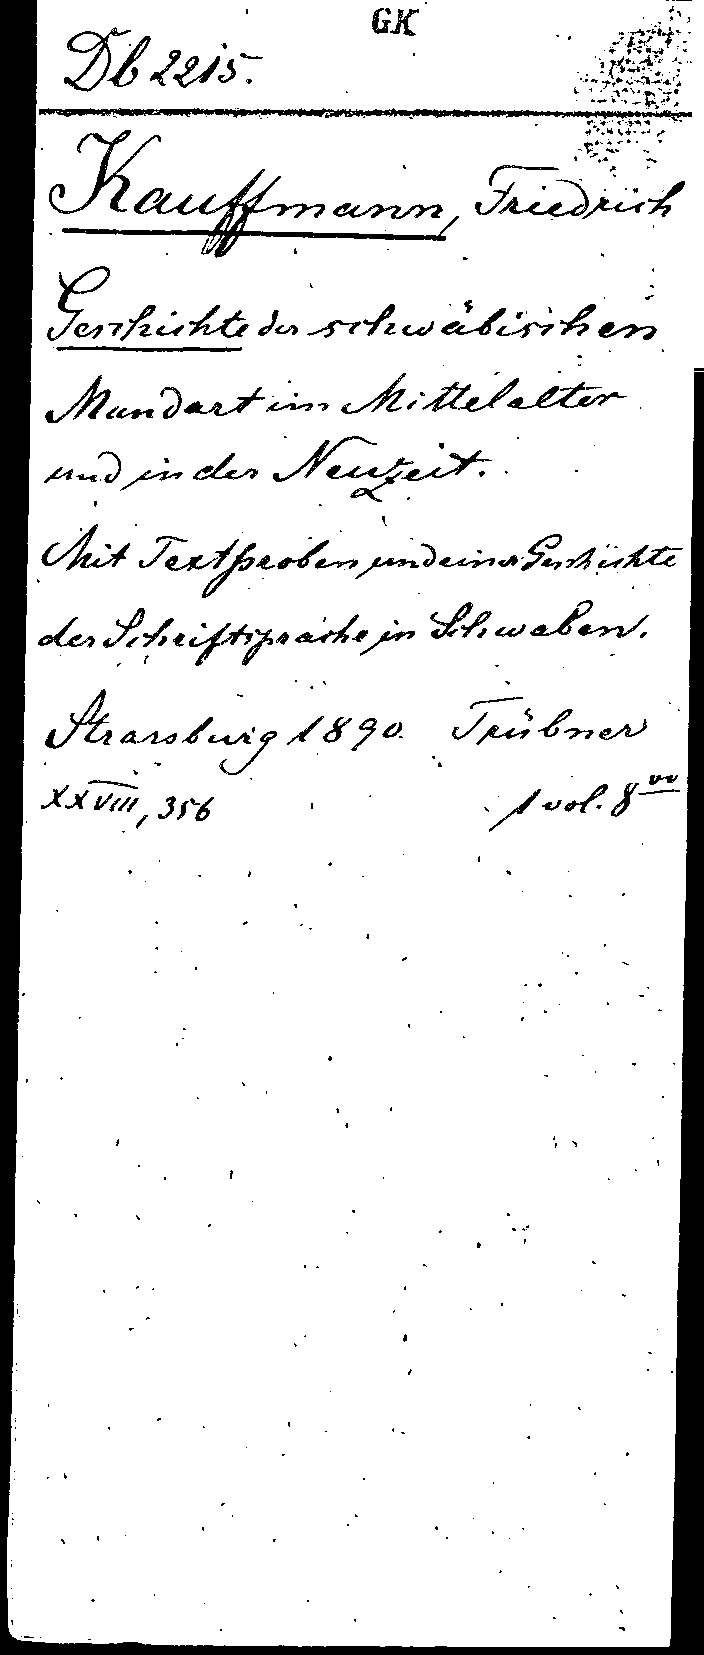 GK
Db 2215.
Kauffmann, Friedrich
Geschichte der schwäbischen
Mundart im Mittelalter
und in der Neuzeit.
Mit Textproben und einer Geschichte
der Schriftsprache in Schwaben.
Strassburg 1890. Trübner
XXVIII, 356 1 vol. 8vo